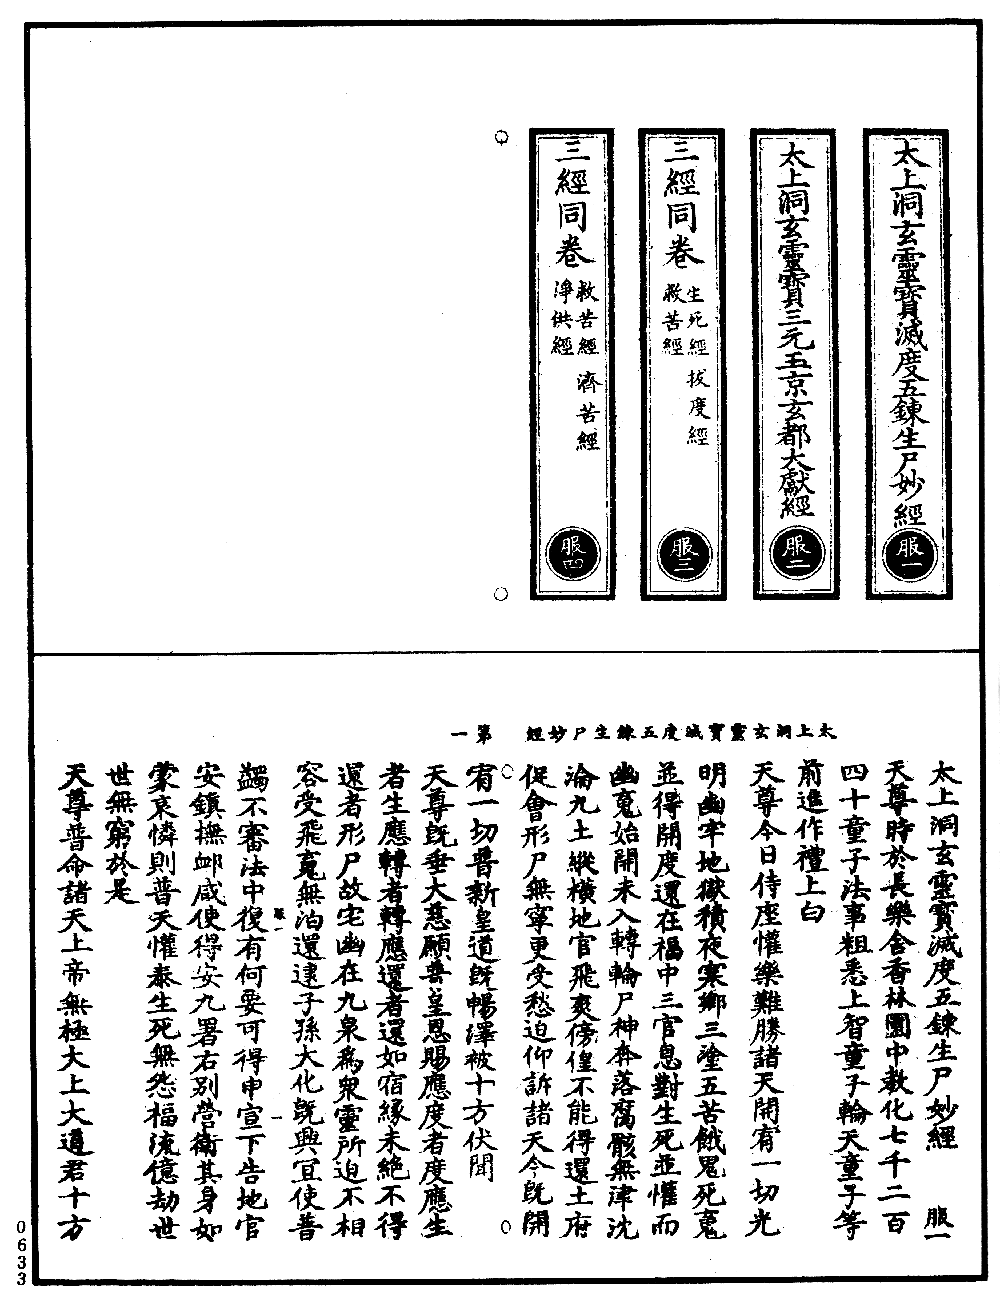 太上洞玄靈寶滅度五鍊生尸妙經
服一
太上洞玄靈寶三元玉京玄都大獻經
服二
三經同卷
生死經 拔度經
救苦經
服三
三經同卷
救苦經 濟苦經
淨供經
服四
太上洞玄靈寶滅度五鍊生尸妙經 第一
太上洞玄靈寶滅度五鍊生尸妙經 服一
天尊時於長樂舍香林園中教化七千二百
四十童子法事粗悉上智童子輪天童子等
前進作禮上白
天尊今日侍座懽樂難勝諸天開宥一切光
明幽牢地獄積夜寒鄉三塗五苦餓鬼死魂
並得開度還在福中三官息對生死並懽而
幽魂始開未入轉輪尸神奔落腐骸無津沈
淪九土縱橫地官飛爽傍偟不能得還土府
促會形尸無寧更受愁迫仰訴諸天今既開
宥一切普新皇道既暢澤被十方伏聞
天尊既垂大慈願普皇恩賜應度者度應生
者生應轉者轉應還者還如宿緣未絕不得
還者形尸故宅幽在九泉為衆靈所迫不相
容受飛魂無泊還逮子孫大化既興宜使普
蠲不審法中復有何要可得申宣下告地官
安鎮撫卹咸使得安九署右別營衛其身如
蒙哀憐則普天懽泰生死無怨福流億劫世
世無窮於是
天尊普命諸天上帝無極大上大道君十方
服一 一
0633